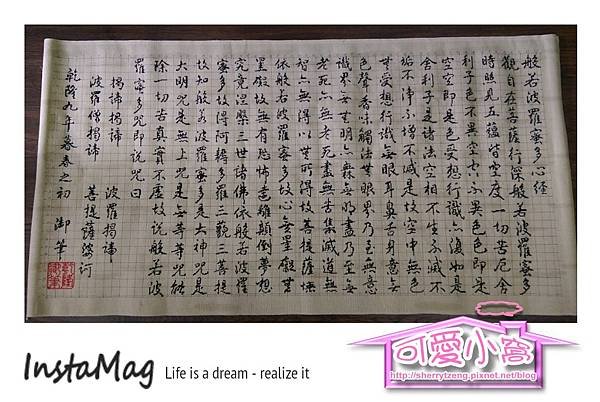 般若波羅蜜多心經
觀自在菩薩行深般若波羅蜜多
時照見五蘊皆空度一切苦厄舍
利子色不異空空不異色色即是
空空即是色受想行識亦復如是
舍利子是諸法空相不生不滅不
垢不淨不增不減是故空中無色
無受想行識無眼耳鼻舌身意無
色聲香味觸法無眼界乃至無意
識界無無明亦無無明盡乃至無
老死亦無老死盡無苦集滅道無
智亦無得以無所得故菩提薩埵
依般若波羅蜜多故心無罣礙無
罣礙故無有恐怖遠離顛倒夢想
究竟涅槃三世諸佛依般若波羅
蜜多故得阿耨多羅三藐三菩提
故知般若波羅蜜多是大神咒是
大明咒是無上咒是無等等咒能
除一切苦真實不虛故說般若波
羅蜜多咒即說咒曰
揭諦揭諦 波羅揭諦
波羅僧揭諦 菩提薩婆訶
乾隆九年暮春之初 御筆
InstaMag Life is a dream - realize it
可愛小窩
http://sherrytzeng.pixnet.net/blog